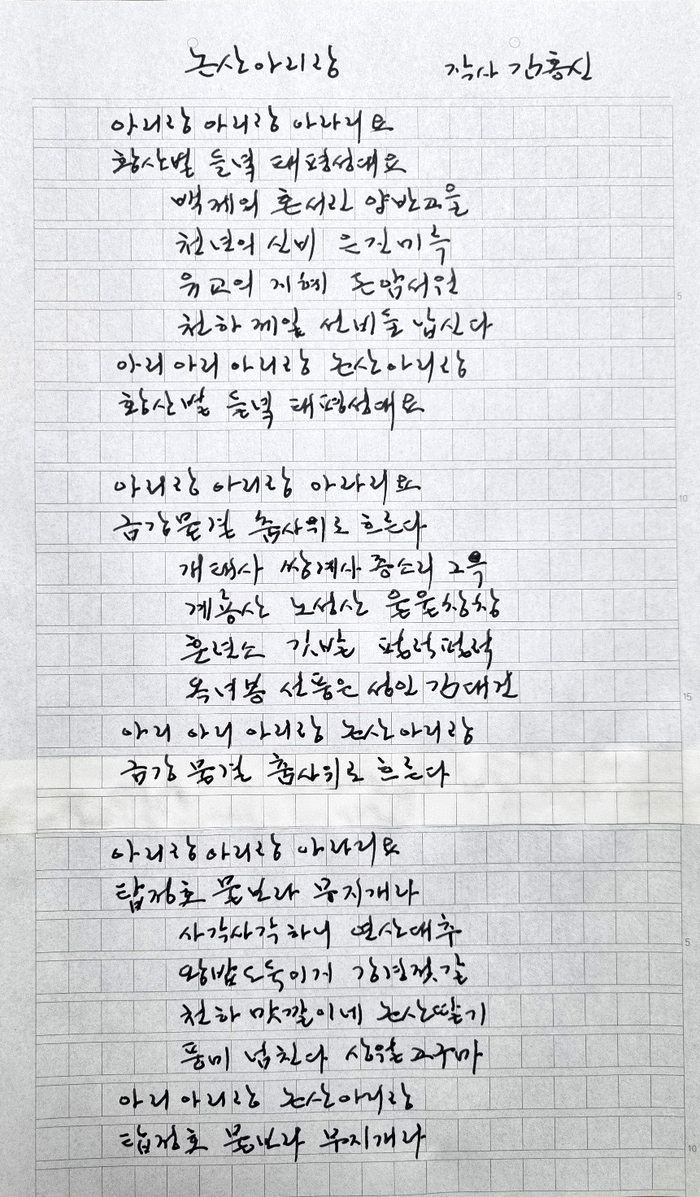 논산아리랑 작사 김홍신
아리랑 아리랑 아라리요
황산벌 들녘 태평성대요
백제의 혼서린 양반고을
천년의 신비 은진미륵
유교의 지혜 돈암서원
천하 제일 선비들 납신다
아리 아리 아리랑 논산아리랑
황산벌 들녘 태평성대요
아리랑 아리랑 아라리요
금강물결 춤사위로 흐른다
개태사 쌍계사 종소리 그윽
계룡산 노성산 울울창창
훈련소 깃발 펄럭펄럭
옥녀봉 선풍은 성인 김대건
아리 아리 아리랑 논산아리랑
금강 물결 춤사위로 흐른다
아리랑 아리랑 아라리요
탑정호 물보라 무지개라
사각사각 하니 연산대추
왕밥도둑이거 강경젓갈
천하 맛깔이네 논산딸기
풍미 넘친다 상월고구마
아리 아리랑 논산아리랑
탑정호 물보라 무지개라
5
10
15
5
10